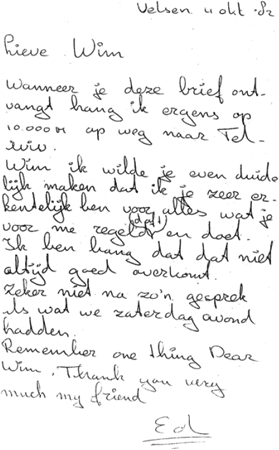 Velsen 11 okt '82
Lieve Wim
Wanneer je deze brief ont-
vangt hang ik ergens op
10.000 m op weg naar Tel-
Aviv.
Wim ik wilde je even duide
lijk maken dat ik je zeer er-
kentelijk ben voor alles wat je
voor me regelt en doet.
Ik ben bang dat dat niet
altijd goed overkomt.
Zeker niet na zo'n gesprek
als wat we zaterdag avond
hadden.
Remember one thing Dear
Wim, Thank you very
much my friend
Ed